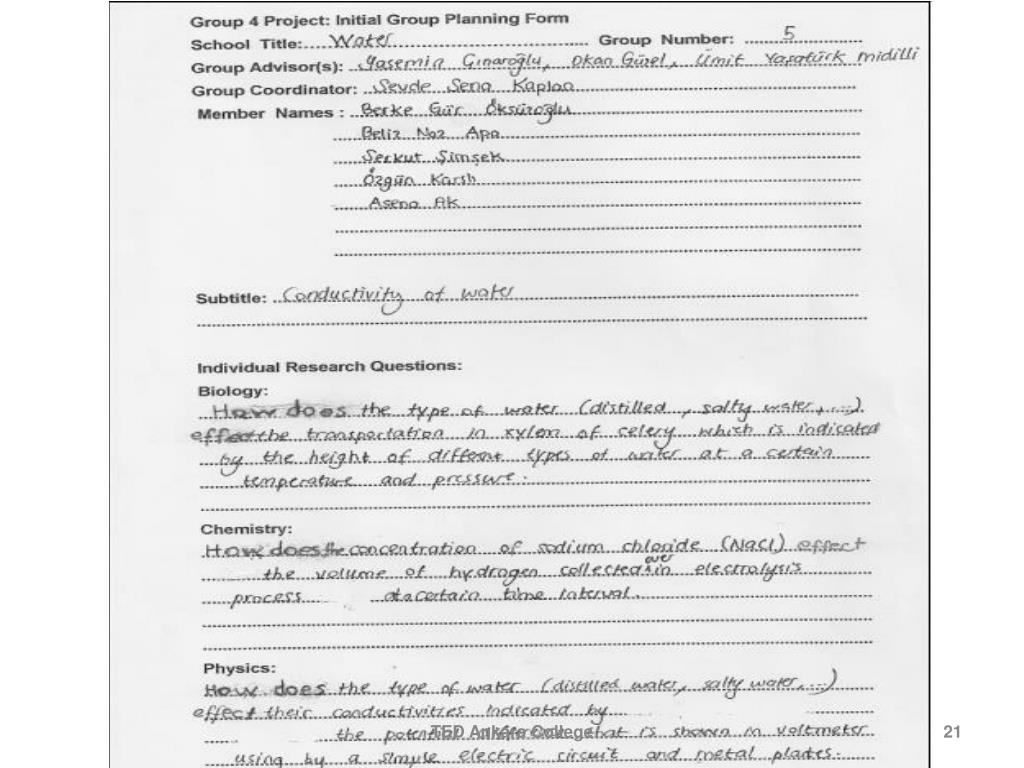 Group 4 Project: Initial Group Planning Form
School Title:....Water
Group Number: 5
Group Advisor(s): Yasemin Cınaroğlu, Okan Gürel, Ümit Yaşatürk midilli
Group Coordinator: Sevde Sena Kaplan
Member Names : Berke Gür Öksüzoğlu
Beliz Naz Apa
Serkut Şimşek
Özgün Karslı
Asena Ak
Subtitle: Conductivity of water
Individual Research Questions:
Biology:
How does the type of water (distilled, salty water,...)
effect the transportation in xylem of celery which is indicated
by the height of different types of water at a certain
temperature and pressure.
Chemistry:
How does the concentration of sodium chloride (NaCl) effect
the volume of hydrogen collected over in electrolysis
process at a certain time interval.
Physics:
How does the type of water (distilled water, salty water,...)
effect their conductivities indicated by
the potential that is shown in voltmeter
TED Ankara College
21
using by a simple electric circuit and metal plates.